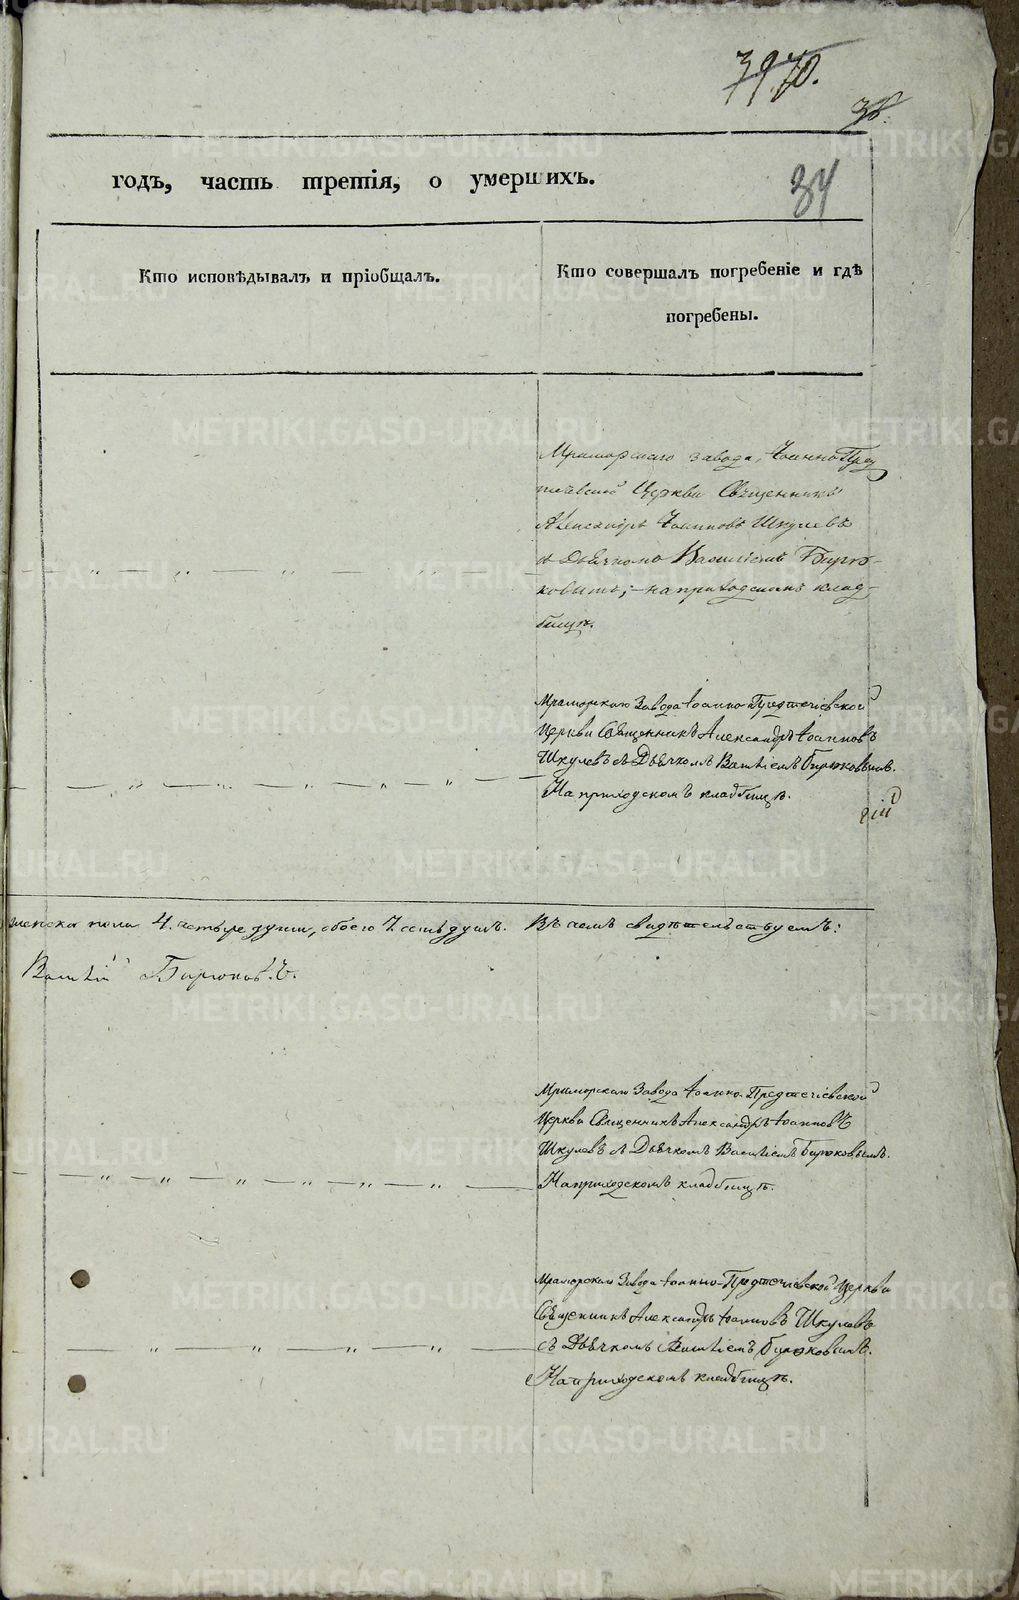 70.
34
годъ, часть третія, о умершихъ.
Кто исповѣдывалъ и пріобщалъ.
Кто совершалъ погребеніе и гдѣ
погребены.
Мраморскаго завода, Іоанно Пред
течевской Церкви Священникъ
Александръ Іоанновъ Шкулевъ
съ Дьячкомъ Василіемъ Бирю-
ковымъ; на приходскомъ клад-
бищѣ.
Мраморскаго Завода Іоанно-Предтечіевской
Церкви Священникъ Александръ Іоанновъ
Шкулевъ съ Дьячкомъ Василіемъ Бирюковымъ.
На приходскомъ кладбищѣ.
женска пола 4. четыре души, обоего 7. семь душъ. Въ чемъ свидѣтельствуемъ:
Василій Бирюковъ.
Мраморскаго Завода Іоанно-Предтечіевской
Церкви Священникъ Александръ Іоанновъ
Шкулевъ съ Дьячкомъ Василіемъ Бирюковымъ.
На приходскомъ кладбищѣ.
Мраморскаго Завода Іоанно-Предтечіевской Церкви
Священникъ Александръ Іоанновъ Шкулевъ
съ Дьячкомъ Василіемъ Бирюковымъ.
На приходскомъ кладбищѣ.
METRIKI.GASO-URAL.RU